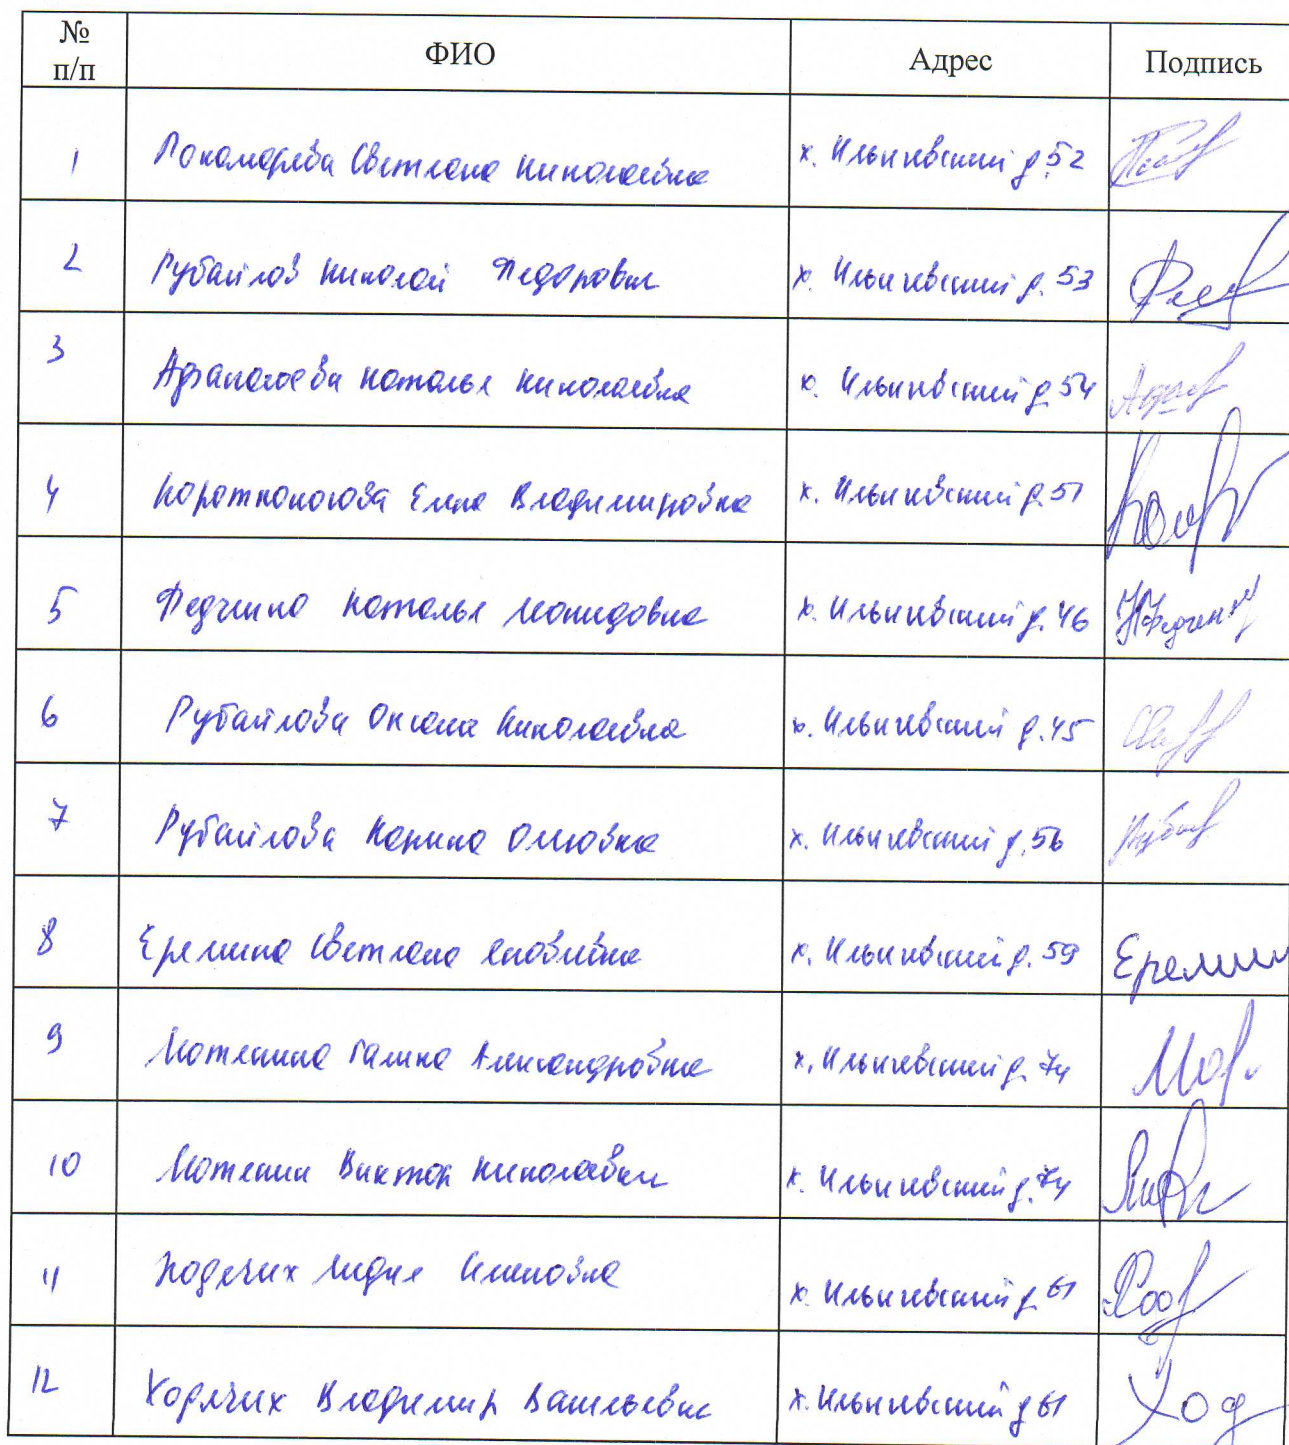 № п/п ФИО Адрес Подпись
1 Пономарева Светлана Николаевна х. Ильичевский д.52
2 Рубайлов Николай Федорович х. Ильичевский д. 53
3 Наталья Николаевна х. Ильичевский д.54
4 Коротконогова Елена Владимировна х. Ильичевский д.51
5 Федченко Наталья Леонидовна х. Ильичевский д.46
6 Рубайлова Оксана Николаевна х. Ильичевский д.45
7 Рубайлова Карина Олеговна х. Ильичевский д.56
8 Еремина Светлана х. Ильичевский д. 59 Еремин
9 Галина Александровна х. Ильичевский д. 74
10 Виктор Николаевич х. Ильичевский д.74
11 Ходячих Лидия х. Ильичевский д 61
12 Ходячих Владимир Васильевич х. Ильичевский д 61 Ход